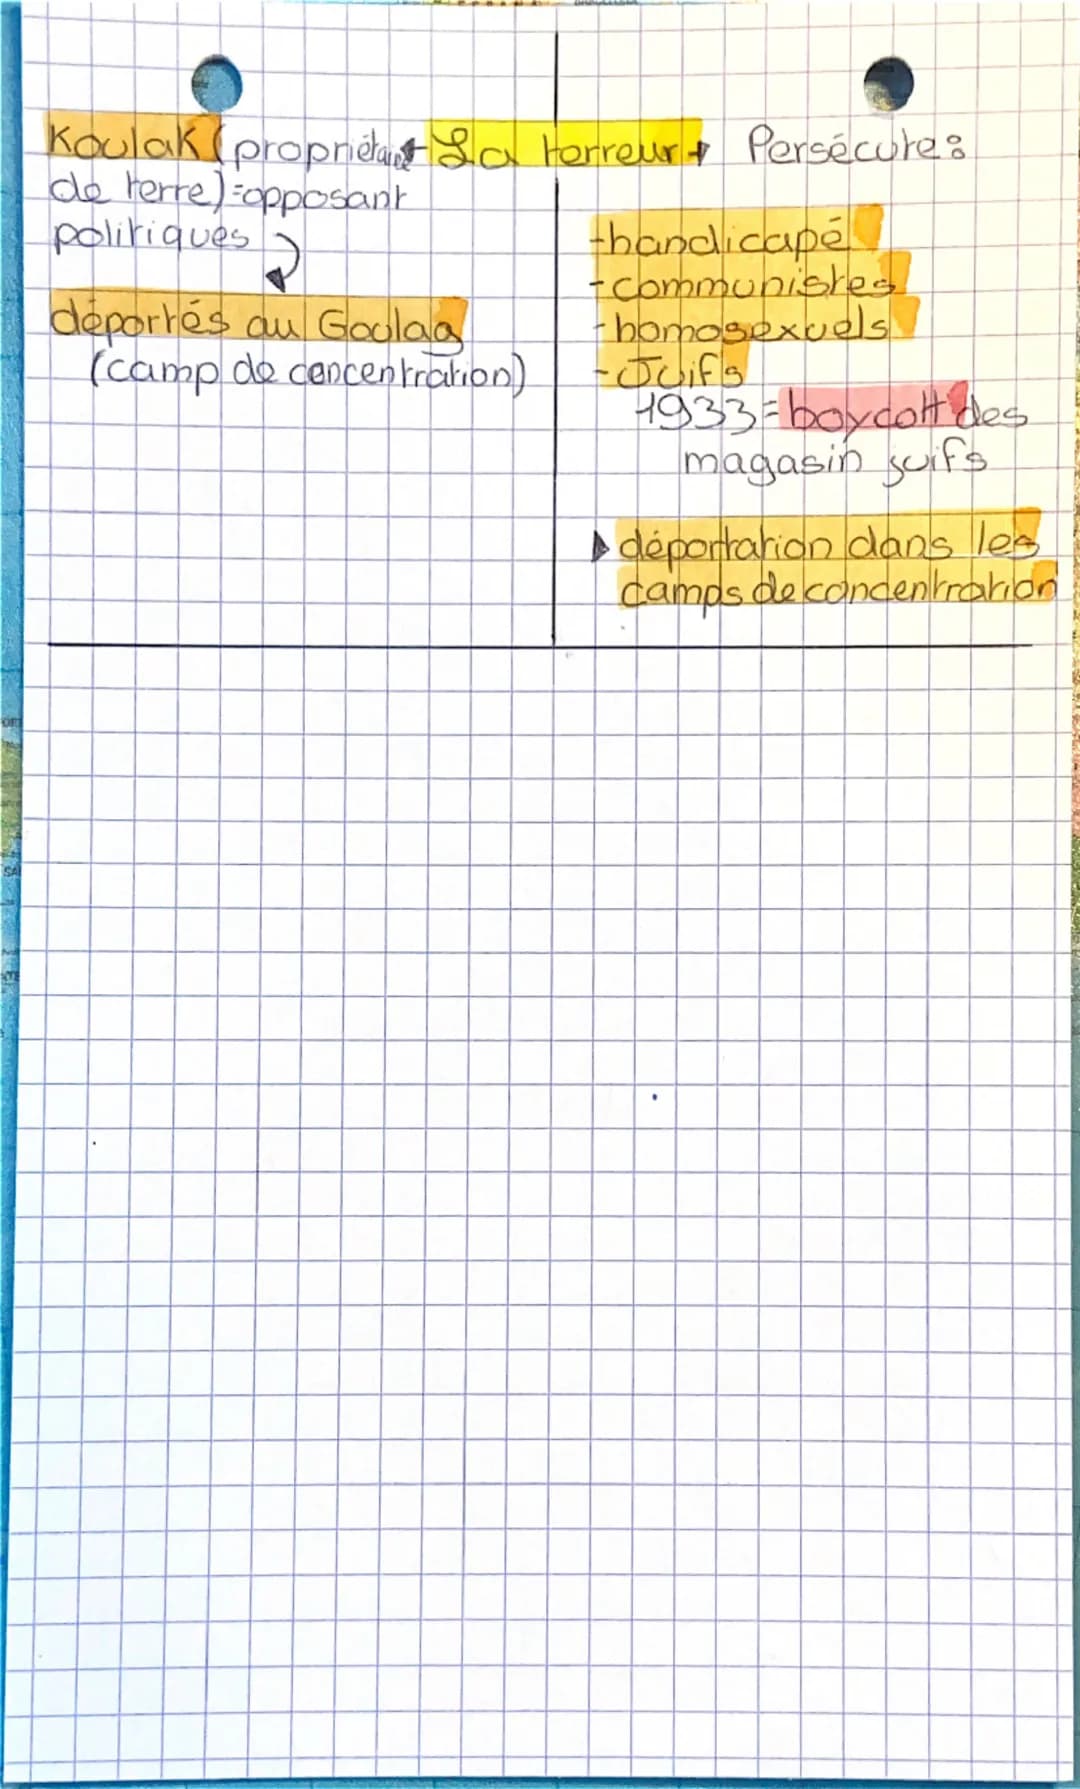 Koulak (propriétaire
de terre)=opposant
politiques
déportés au Goulag
(camp de concentration)
La terreur
Persécute:
-handicapé
-communistes
-homosexuels
-Juifs
1933=boycott des
magasin juifs
déportation dans les
camps de concentration